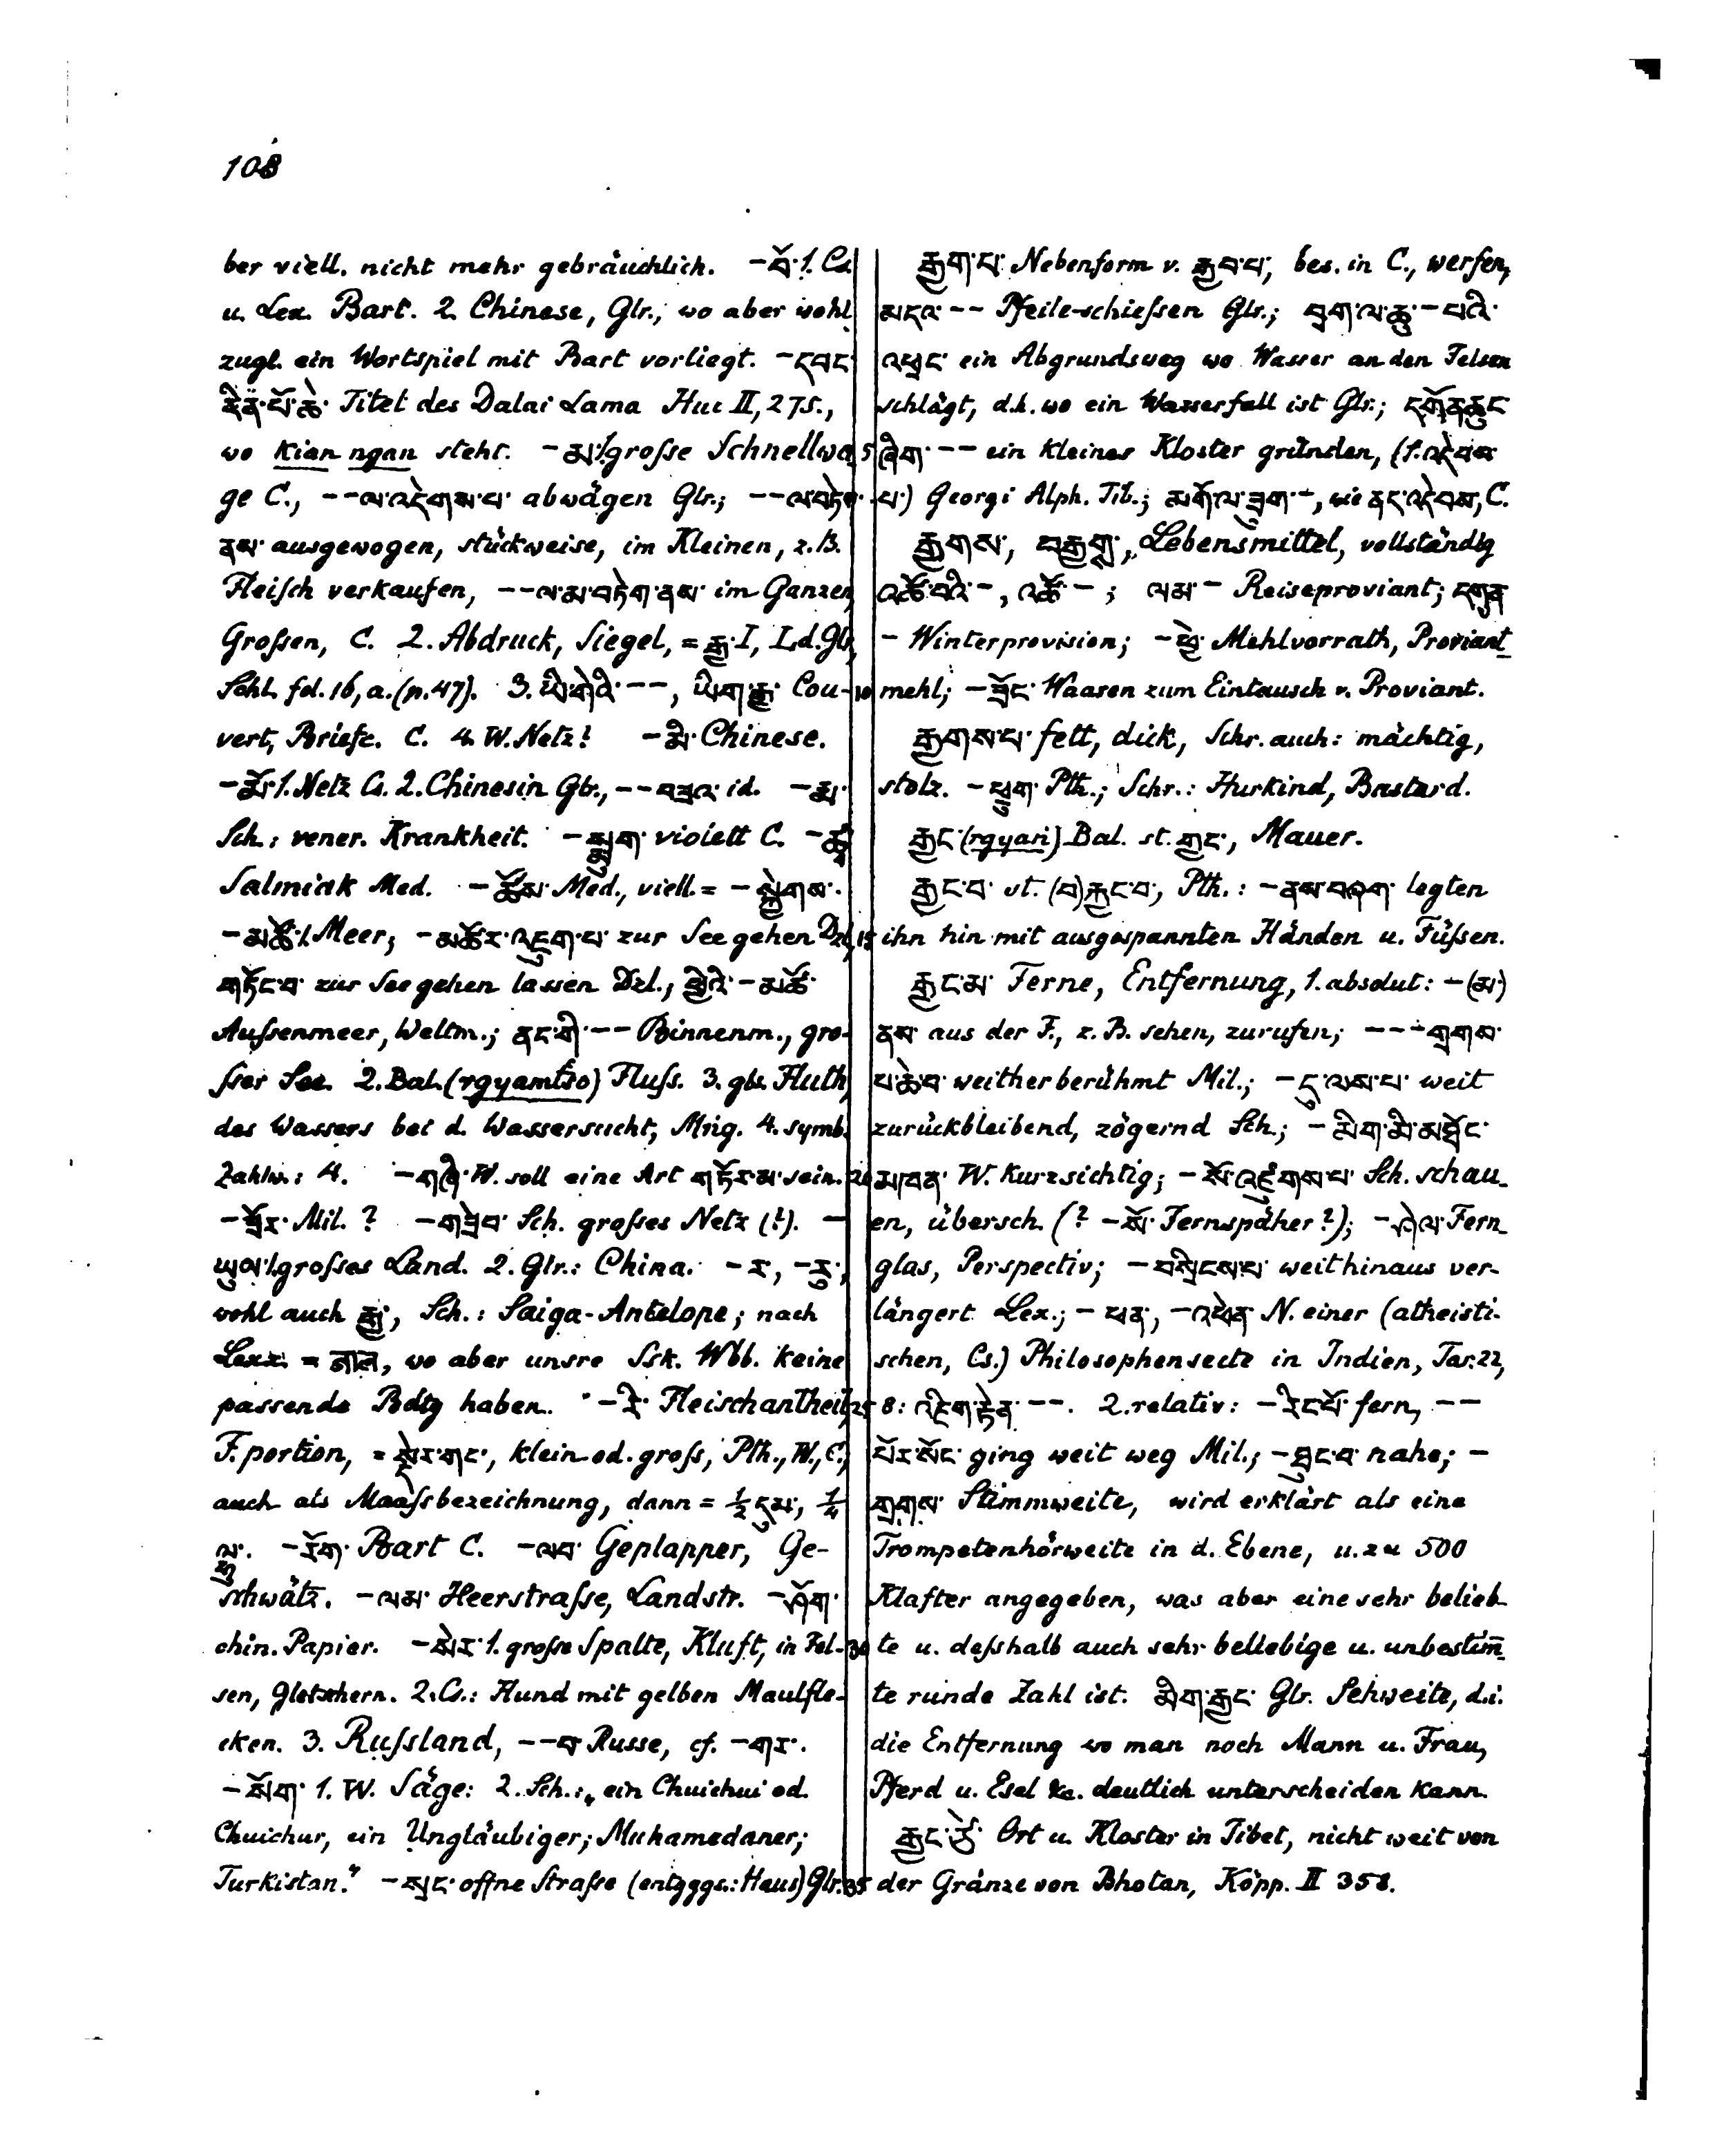 108
ber viell. nicht mehr gebräuchlich. –བོ་ 1. Cs.
u. Lex. Bart. 2. Chinese, Glr.; wo aber wohl
zugl. ein Wortspiel mit Bart vorliegt. –དབང་
རིན་པོ་ཆེ་ Titel des Dalai Lama Huc II, 275.,
wo kian ngan steht. –མ་ 1. grosse Schnellwa-
ge C., ––ལ་འདེགས་པ་ abwägen Glr.; ––ལ་བཏེག་
ནས་ ausgewogen, stückweise, im Kleinen, z.B.
Fleisch verkaufen, ––ལ་མ་བཏེག་ནས་ im Ganzen,
Grossen, C. 2. Abdruck, Siegel, = རྒྱ་ I, Ld. Glr,
Schl. fol. 16, a. (p. 47). 3. ཡི་གེའི་ ––, ཡིག་རྒྱ་ Cou-
vert, Briefe. C. 4. W. Netz? –མི་ Chinese.
–མོ་ 1. Netz Cs. 2. Chinesin Glr., ––བཟའ་ id.
Sch.: vener. Krankheit. –སྨུག་ violett C. –ཚྭ
Salmiak Med. –ཚོས་ Med., viell. = –སྐྱེགས་.
–མཚོ་ 1. Meer; –མཚོར་འཇུག་པ་ zur See gehen Dzl,
གཏོང་བ་ zur See gehen lassen Dzl., ཕྱིའི་–མཚོ་
Aussenmeer, Weltm.; ནང་གི་–– Binnenm., gro-
sser See. 2. Bal. (rgyamtso) Fluss. 3. gbr. Fluth
des Wassers bei d. Wassersucht, Mṅg. 4. symb.
Zahlw.: 4. –གཞི་ W. soll eine Art གཏོར་མ་ sein.
–ཟོར་ Mil. ? –གཟེབ་ Sch. grosses Netz (?). –
ཡུལ་ 1. grosses Land. 2. Glr.: China. –ར་, –རུ་,
wohl auch རྒྱ་, Sch.: Saiga-Antelope; nach
Lexx. = , wo aber unsre Ssk. Wbb. keine
passende Bdtg haben. –རི་ Fleischantheil,
F. portion, = སྡེར་གང་, klein od. gross, Pth., W., C.,
auch als Maassbezeichnung, dann = ½ དུམ་, ¼
ལྷུ་. –རོག་ Bart C. –ལབ་ Geplapper, Ge-
schwätz. –ལམ་ Heerstrasse, Landstr. –ཤོག་
chin. Papier. –སེར་ 1. grosse Spalte, Kluft, in Fel-
sen, Gletschern. 2. Cs.: Hund mit gelben Maulfle-
cken. 3. Russland, ––བ་ Russe, cf. –གར་.
–སོག་ 1. W. Säge: 2. Sch.: „ein Chuichui od.
Chuichur, ein Ungläubiger; Muhamedaner;
Turkistan.“ –སྲང་ offne Strasse (entgggs.: Haus) Glr.
རྒྱག་པ་ Nebenform v. རྒྱབ་པ་, bes. in C., werfen,
མདའ་ –– Pfeile-schiessen Glr.; བྲག་ལ་ཆུ་–པའི་
འཕྲང་ ein Abgrundsweg wo Wasser an den Felsen
schlägt, d.h. wo ein Wasserfall ist Glr.; དགོན་ཆུང་
5 ཞིག་ –– ein kleines Kloster gründen, (1. འདེབས་
པ་) Georgi Alph. Tib.; མགོ་ལ་ཟུག་–, wie ནད་འདེབས, C.
རྒྱགས་, བརྒྱགས་, Lebensmittel, vollständig
འཚོ་བའི་–, འཚོ་–; ལམ་– Reiseproviant; དགུན་
– Winterprovision; –ཕྱེ་ Mehlvorrath, Proviant-
10 mehl; –ཟོང་ Waaren zum Eintausch v. Proviant.
རྒྱགས་པ་ fett, dick, Schr. auch: mächtig,
stolz. –ཕྲུག་ Pth.; Schr.: Hurkind, Bastard.
རྒྱང་ (rgyaṅ) Bal. st. གྱང་, Mauer.
རྒྱང་བ་ st. (བ)རྐྱང་བ་, Pth.: –ནས་བཞག་ legten
15 ihn hin mit ausgespannten Händen u. Füssen.
རྒྱང་མ་ Ferne, Entfernung, 1. absolut: –(མ་)
ནས་ aus der F., z. B. sehen, zurufen; –––གྲགས་
པ་ཆེ་བ་ weitherberühmt Mil.; –དུ་ལས་པ་ weit
zurückbleibend, zögernd Sch.; –མིག་མི་མཐོང་
20 མཁན་ W. kurzsichtig; –སོ་འཛུགས་པ་ Sch. schau-
en, übersch. (? –སོ་ Fernspäher?); –ཤེལ་ Fern-
glas, Perspectiv; –བསྲིངས་པ་ weithinaus ver-
längert Lex.; –ཕན་, –འཕེན་ N. einer (atheisti-
schen, Cs.) Philosophensecte in Indien, Tar. 22,
25 8: འཇིག་རྟེན་ ––. 2. relativ: –རིང་པོ་ fern, ––
པོར་སོང་ ging weit weg Mil.; –ཐུང་བ་ nahe; –
གྲགས་ Stimmweite, wird erklärt als eine
Trompetenhörweite in d. Ebene, u. zu 500
Klafter angegeben, was aber eine sehr belieb-
30 te u. desshalb auch sehr beliebige u. unbestim̄-
te runde Zahl ist. མིག་རྒྱང་ Glr. Sehweite, d.i.
die Entfernung wo man noch Mann u. Frau,
Pferd u. Esel &c. deutlich unterscheiden kann.
རྒྱང་རྩེ་ Ort u. Kloster in Tibet, nicht weit von
35 der Gränze von Bhotan, Köpp. II 358.